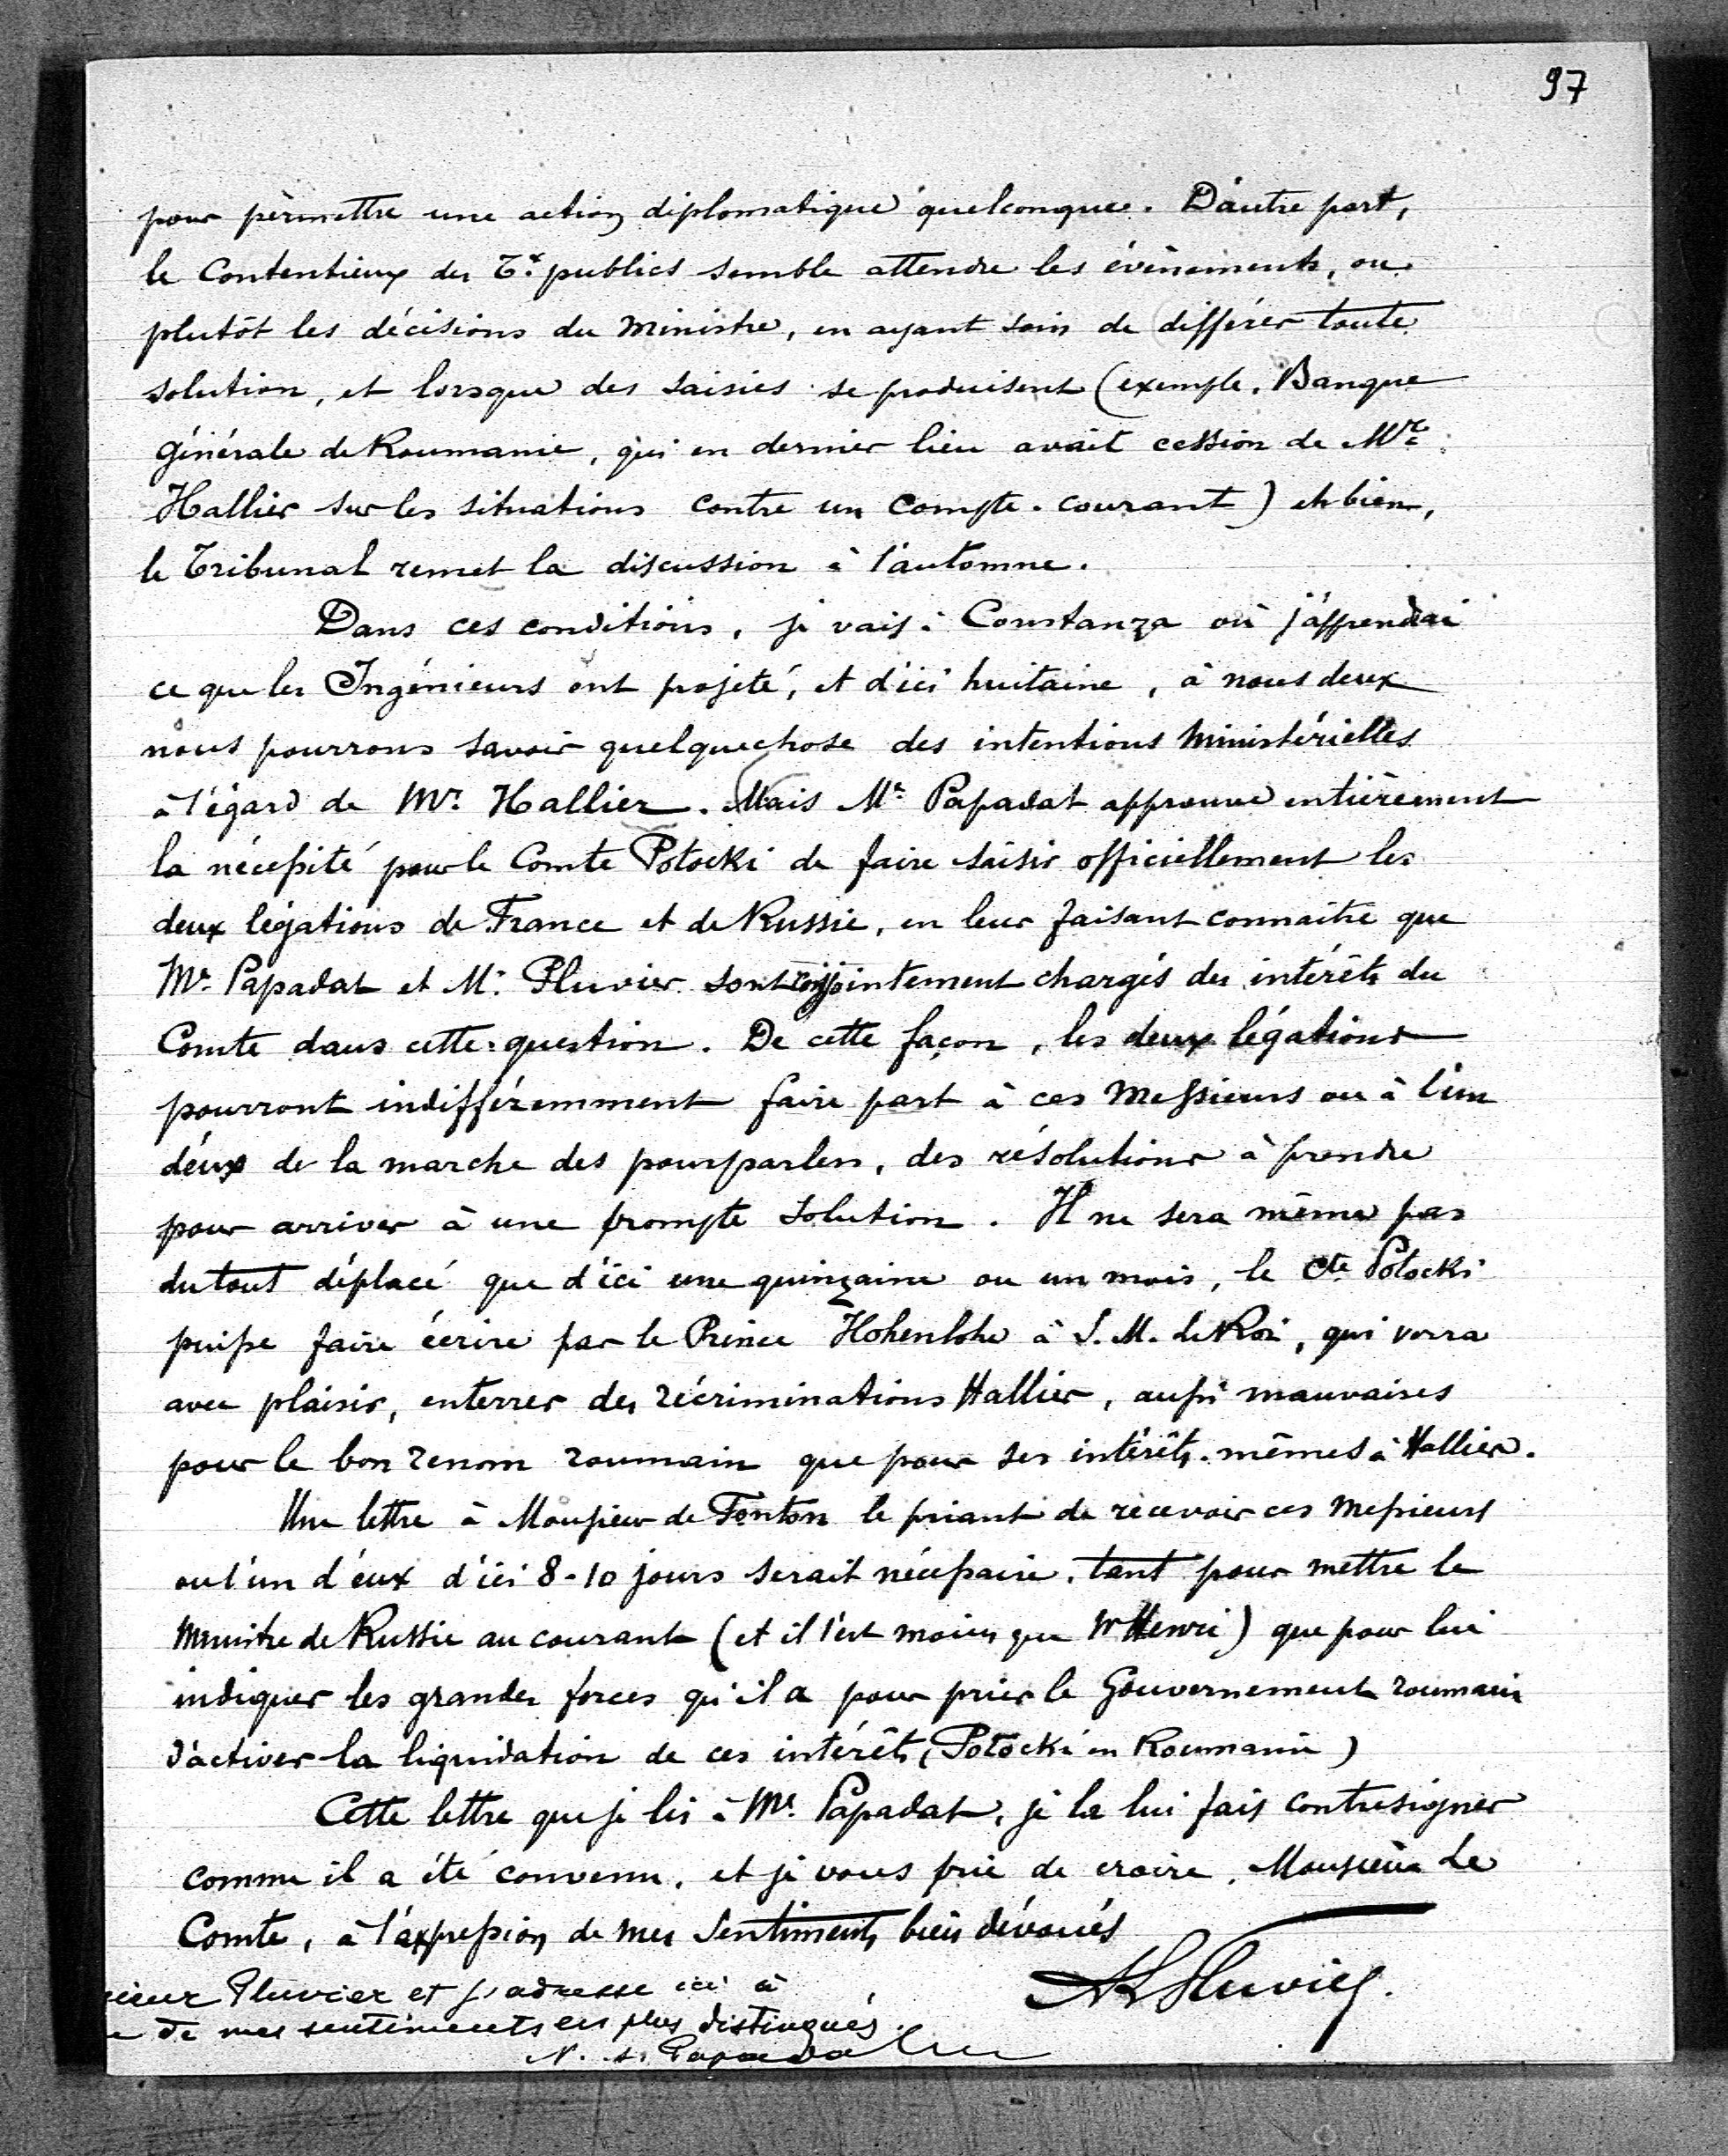 97
pour permettre une action diplomatique quelconque. D'autre part,
le Contentieux des Tx publics semble attendre les évènements, ou
plutôt les décisions du Ministre, en ayant soin de différer toute
solution, et lorsque des saisies se produisent (exemple, Banque
générale de Roumanie, qui en dernier lieu avait cession de Mr
Hallier sur les situations contre un compte-courant) eh bien,
le Tribunal remet la discussion à l'automne.
Dans ces conditions, je vais à Constanza où j'apprendrai
ce que les Ingénieurs ont projeté, et d'ici huitaine, à nous deux
nous pourrons savoir quelquechose des intentions Ministérielles
à l'égard de Mr. Hallier. Mais Mr Papadat approuve entièrement
la nécessité pour le Comte Potocki de faire saisir officiellement les
deux légations de France et de Russie, en leur faisant connaitre que
Mr. Papadat et Mr. Pluvier sont conjointement chargés des intérêts du
Comte dans cette question. De cette façon, les deux légations
pourront indifféremment faire part à ces Messieurs ou à l'un
d'eux de la marche des pourparlers, des résolutions à prendre
pour arriver à une prompte solution. Il ne sera même pas
du tout déplacé que d'ici une quinzaine ou un mois, le Cte Potocki
puisse faire écrire par le Prince Hohenlohe à S. M. le Roi, qui verra
avec plaisir, enterrer des récriminations Hallier, aussi mauvaises
pour le bon renom roumain que pour ses intérêts-mêmes à Hallier.
Une lettre à Monsieur de Fonton le priant de recevoir ces Messieurs
ou l'un d'eux d'ici 8-10 jours serait nécessaire, tant pour mettre le
Ministre de Russie au courant (et il l'est moins que Mr Henri) que pour lui
indiquer les grandes forces qu'il a pour prier le Gouvernement roumain
d'activer la liquidation de ces intérêts (Potocki en Roumanie)
Cette lettre que je lis à Mr. Papadat, je la lui fais contresigner
comme il a été convenu, et je vous prie de croire, Monsieur Le
Comte, à l'expression de mes Sentiments bien dévoués
Pluvier.
sieur Pluvier et j'adresse ici à
e de mes sentiments les plus distingués.
N. Papadat